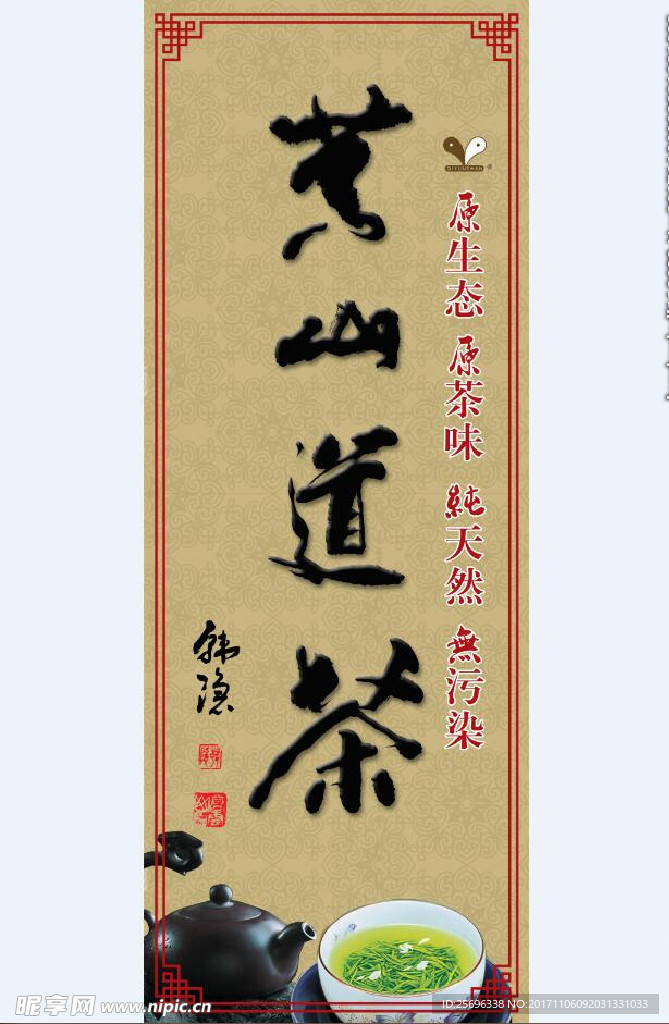 黄山道茶
原生态 原茶味 純天然 無污染
韩隐
昵享网 www.nipic.cn
ID:25696338 NO:20171106092031331033